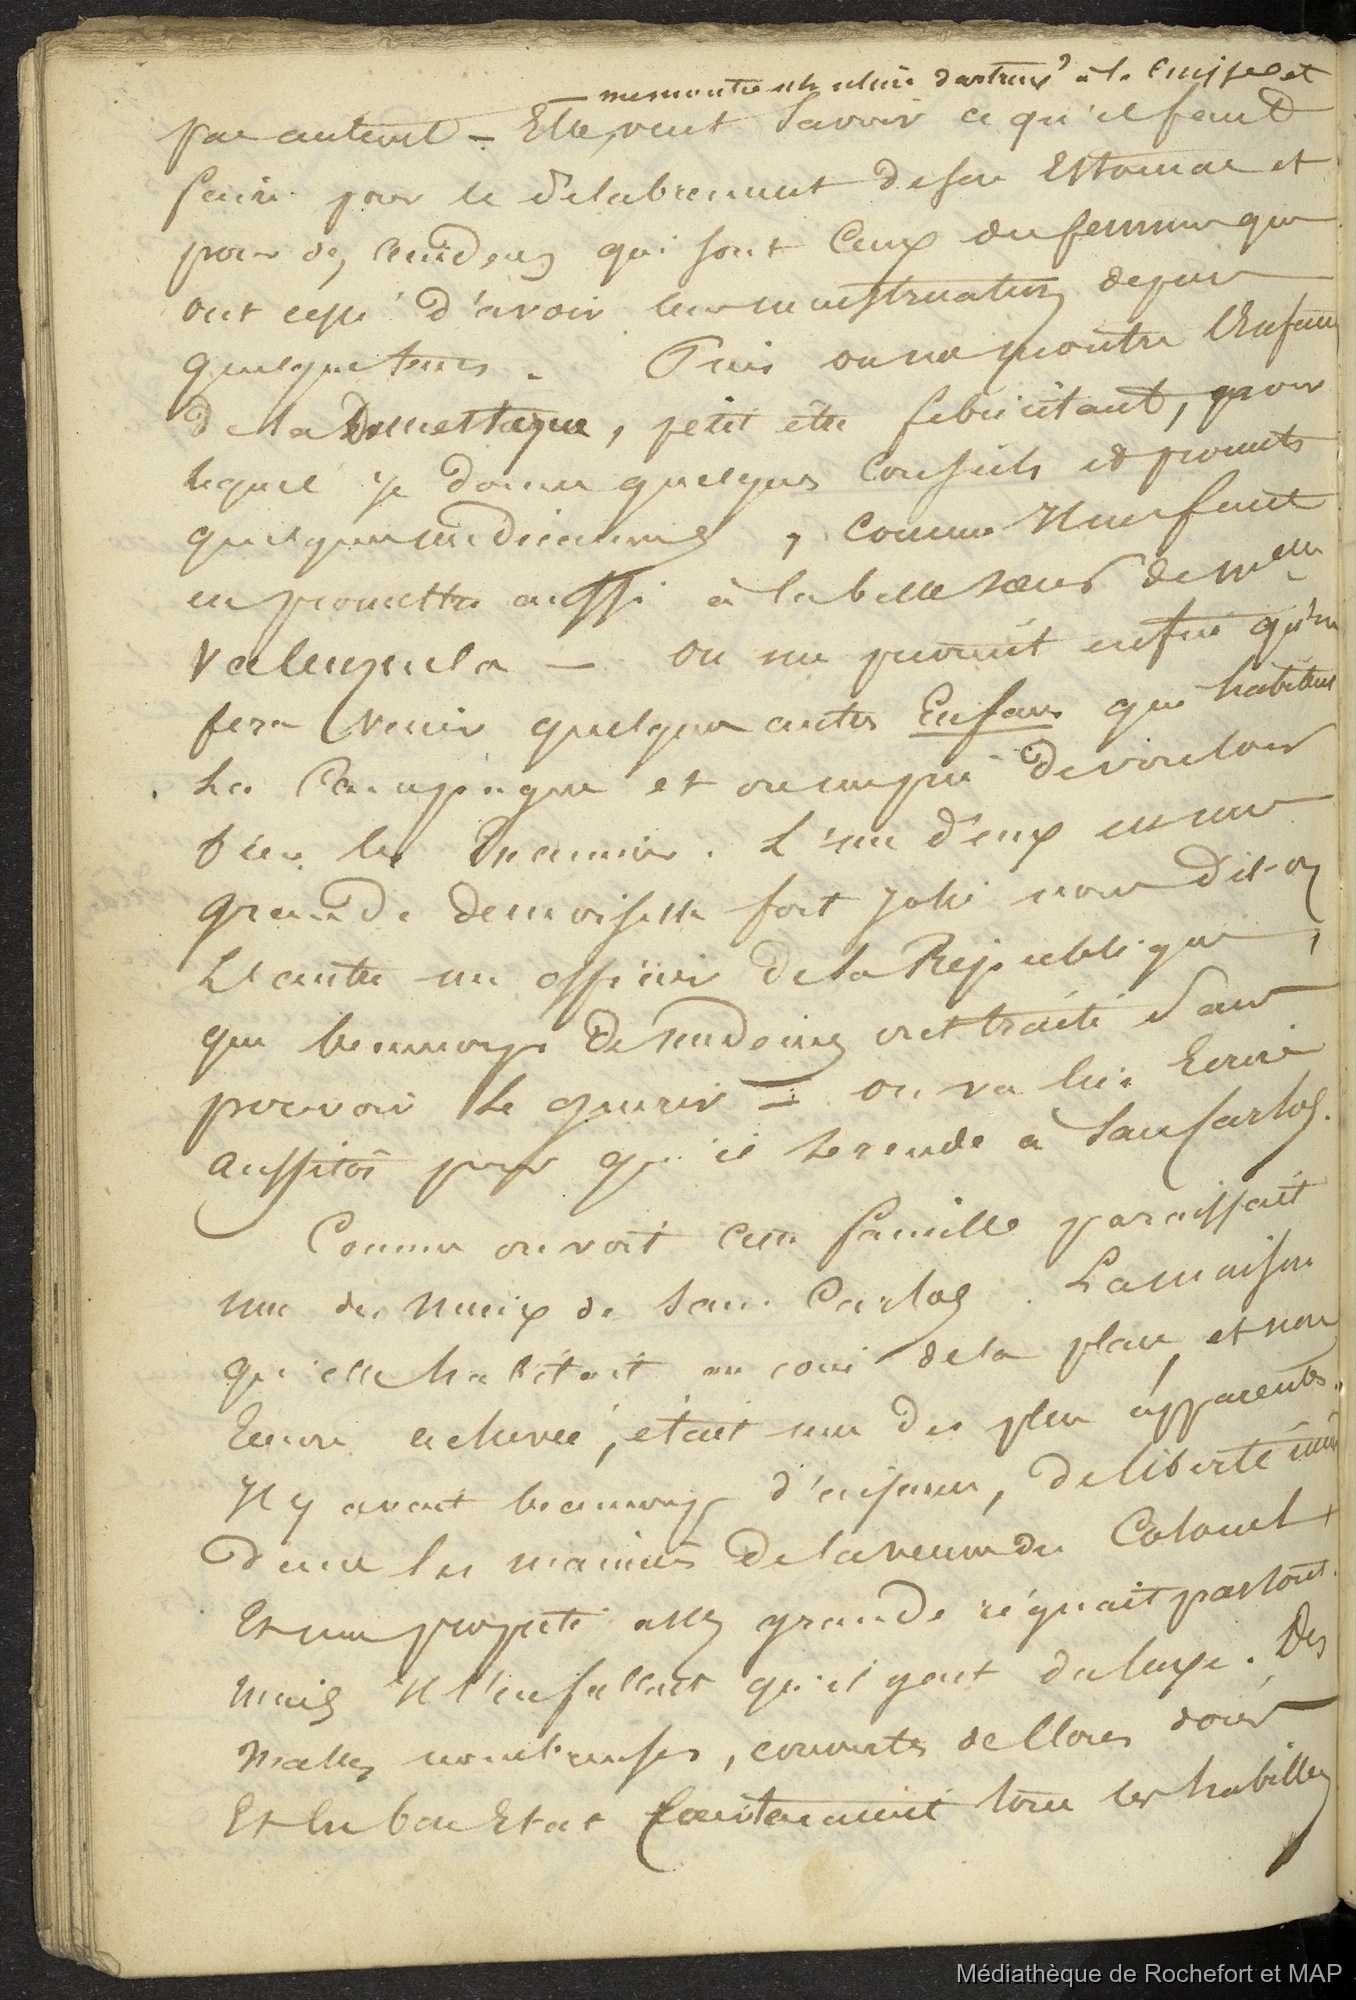 me montre un ulcère dartreux à la cuisse et
par auteurl - Elle veut Savoir ce qu'il faut
faire pour le delabrement de son Estomac et
pour des accidens qui sont ceux des femmes qui
ont cessé d'avoir leur menstruation depuis
quelque tems. Puis on me montre l'Enfant
de la Domestique, petit être febricitant, pour
lequel je donne quelques Conseils et promets
quelques médicamens, comme Il me faut
en promettre aussi à la belle Sœur de Mme
Valenzuela — On me promit enfin qu'on
fera venir quelques autres Enfans qui habitent
La Campagne et on me prie de vouloir
bien les Examiner. L'un d'eux est une
grande demoiselle fort jolie nous dit-on,
L'autre un officier de la République,
que beaucoup de médecins ont traité sans
pouvoir le guérir = On va lui Ecrire
aussitôt pour qu'il se rende à San Carlos.
Comme on voit cette famille paraissait
une des mieux de San Carlos. La maison
qu'elle habitait au coin de la place, et non
Encore achevée, était une des plus apparentes.
Il y avait beaucoup d'aisance, de liberté même
dans les manières de la veuve du Colonel
Et une propreté assez grande régnait partout.
mais Il s'en fallait qu'il y eut du luxe. Des
Malles nombreuses, couvertes de clous dorés
Et en bon Etat Contenaient tous les habilles
Médiathèque de Rochefort et MAP